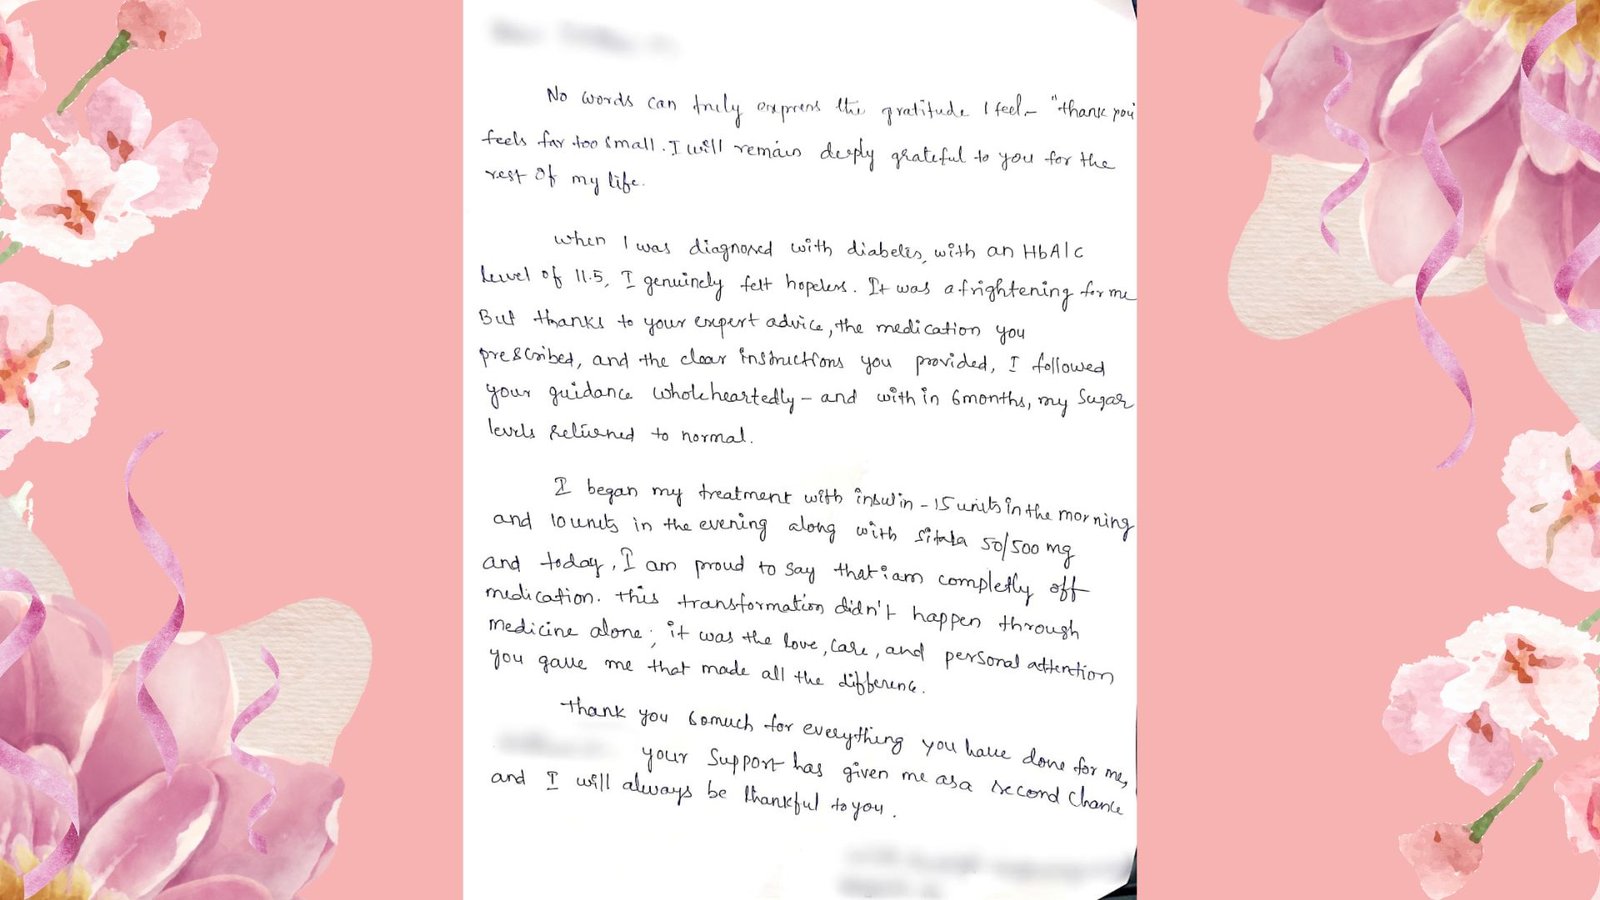 No words can truly express the gratitude I feel - "thank you"
feels far too small. I will remain deeply grateful to you for the
rest of my life.
When I was diagnosed with diabetes, with an HbA1c
level of 11.5, I genuinely felt hopeless. It was a frightening for me
But thanks to your expert advice, the medication you
prescribed, and the clear instructions you provided, I followed
your guidance wholeheartedly - and with in 6 months, my sugar
levels returned to normal.
I began my treatment with insulin - 15 units in the morning
and 10 units in the evening along with 50/500 mg
and today, I am proud to say that i am completly off
medication. This transformation didn't happen through
medicine alone; it was the love, care, and personal attention
you gave me that made all the difference.
Thank you so much for everything you have done for me,
your support has given me as a second chance
and I will always be thankful to you.